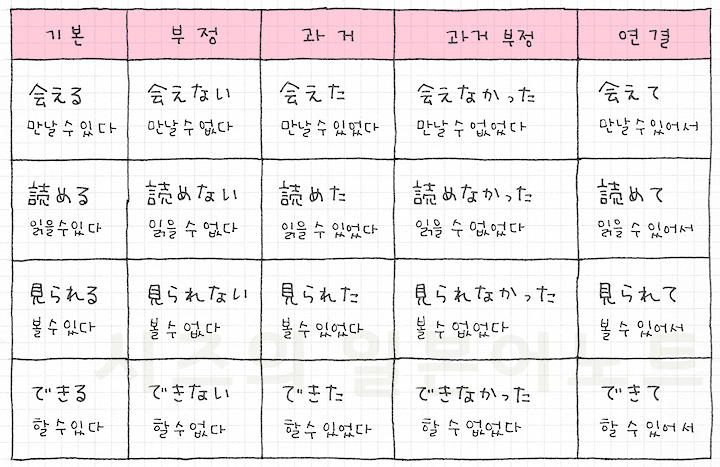 기본 부정 과거 과거 부정 연결
会える 会えない 会えた 会えなかった 会えて
만날 수 있다 만날 수 없다 만날 수 있었다 만날 수 없었다 만날 수 있어서
読める 読めない 読めた 読めなかった 読めて
읽을 수 있다 읽을 수 없다 읽을 수 있었다 읽을 수 없었다 읽을 수 있어서
見られる 見られない 見られた 見られなかった 見られて
볼 수 있다 볼 수 없다 볼 수 있었다 볼 수 없었다 볼 수 있어서
できる できない できた できなかった できて
할 수 있다 할 수 없다 할 수 있었다 할 수 없었다 할 수 있어서